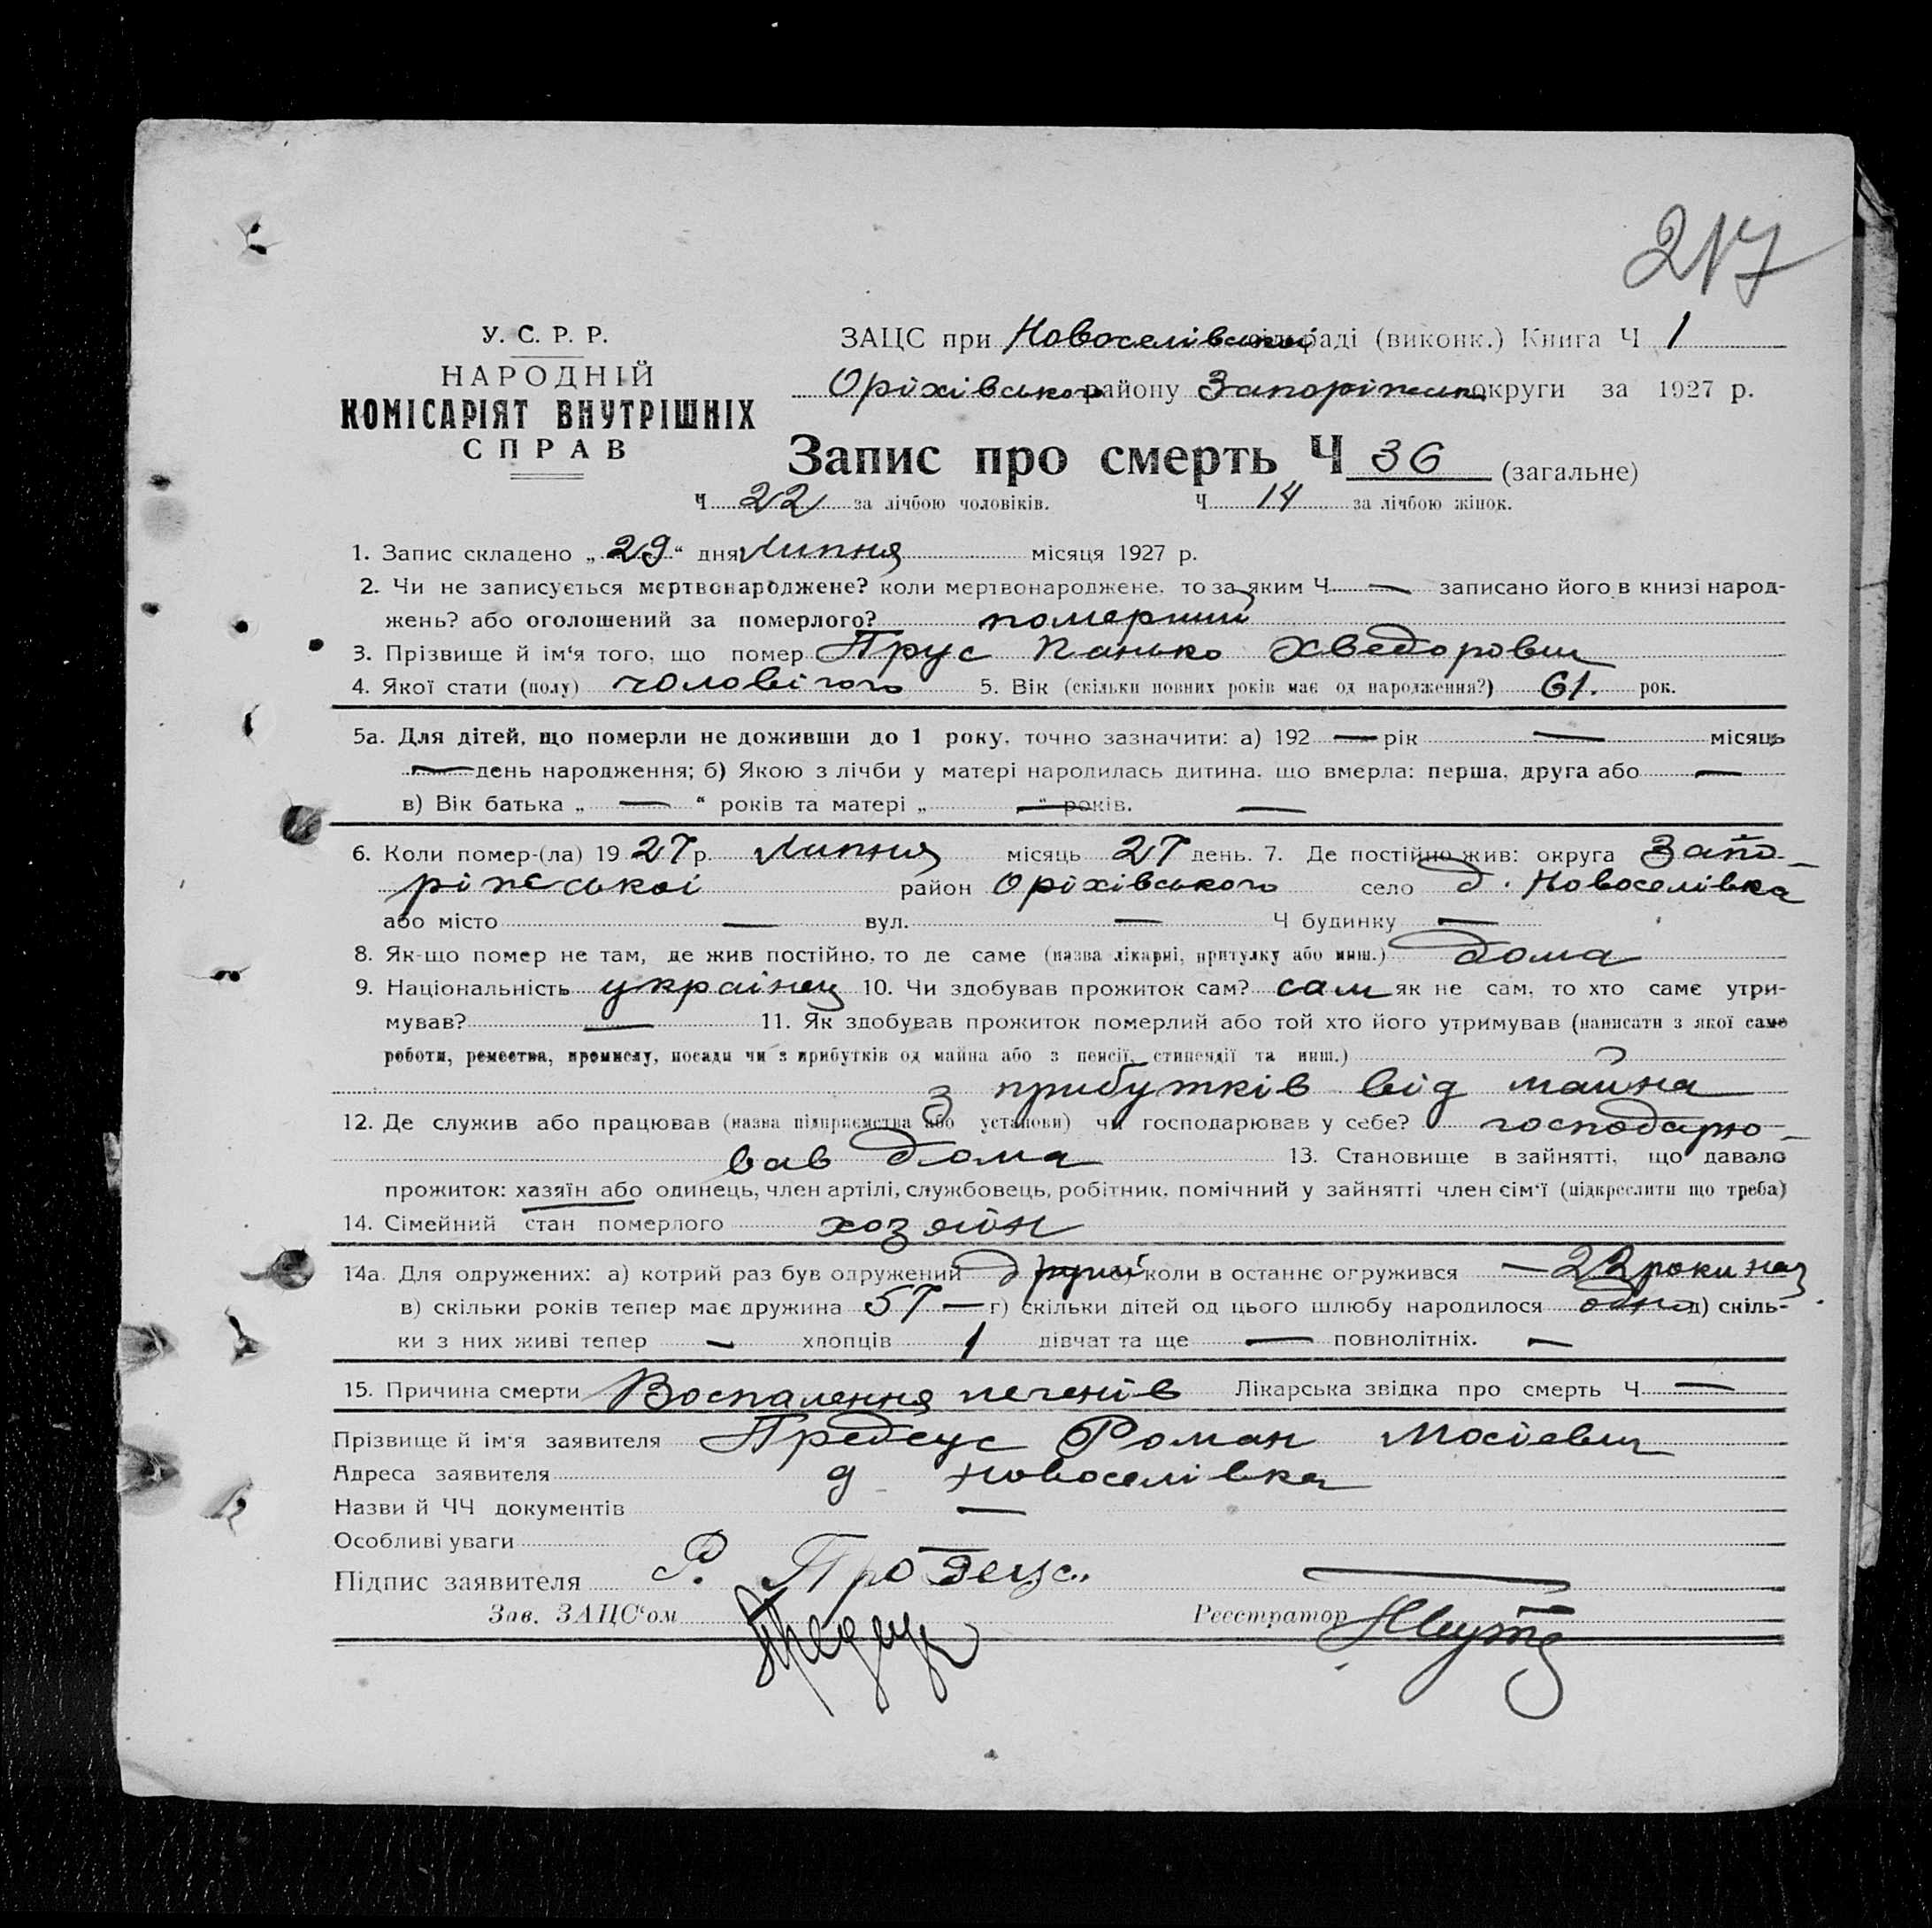 217
У. С. Р. Р.
НАРОДНІЙ
КОМІСАРІЯТ ВНУТРІШНІХ
СПРАВ
ЗАЦС при Новоселівській раді (виконк.) Книга Ч 1
Оріхівського району Запоріжськ округи за 1927 р.
Запис про смерть Ч 36 (загальне)
Ч 22 за лічбою чоловіків. Ч 14 за лічбою жінок.
1. Запис складено „ 29 “ дня Липня місяця 1927 р.
2. Чи не записується мертвонароджене? коли мертвонароджене, то за яким Ч — записано його в книзі народ-
жень? або оголошений за померлого? померший
3. Прізвище й ім‘я того, що помер Прус Панько Хведорович
4. Якої стати (полу) чоловічого 5. Вік (скільки повних років має од народження?) 61. рок.
5а. Для дітей, що померли не доживши до 1 року, точно зазначити: а) 192 — рік — місяць
— день народження; б) Якою з лічби у матері народилась дитина, що вмерла: перша, друга або —
в) Вік батька „ — “ років та матері „ — “ років. —
6. Коли помер-(ла) 19 27 р. Липня місяць 27 день. 7. Де постійно жив: округа Запо-
ріжської район Оріхівського село д. Новоселівка
або місто — вул. — Ч будинку —
8. Як-що помер не там, де жив постійно, то де саме (назва лікарні, притулку або инш.) дома
9. Національність українец 10. Чи здобував прожиток сам? сам як не сам, то хто саме утри-
мував? — 11. Як здобував прожиток померлий або той хто його утримував (написати з якої саме
роботи, ремества, промислу, посади чи з прибутків од майна або з пенсії, стипендії та инш.)
з прибутків від майна
12. Де служив або працював (назва підприємства або установи) чи господарював у себе? господарю-
вав дома 13. Становище в зайнятті, що давало
прожиток: хазяїн або одинець, член артілі, службовець, робітник, помічний у зайнятті член сім‘ї (підкреслити що треба)
14. Сімейний стан померлого хозяїн
14а. Для одружених: а) котрий раз був одружений другий коли в останнє огружився — 22 роки наз
в) скільки років тепер має дружина 57 — г) скільки дітей од цього шлюбу народилося одно д) скіль-
ки з них живі тепер — хлопців 1 дівчат та ще — повнолітніх. —
15. Причина смерти Воспалення печенів Лікарська звідка про смерть Ч —
Прізвище й ім‘я заявителя Предеус Роман Мосієвич
Адреса заявителя д Новоселівка
Назви й ЧЧ документів —
Особливі уваги
Підпис заявителя Р. —
Зав. ЗАЦС‘ом Реєстратор